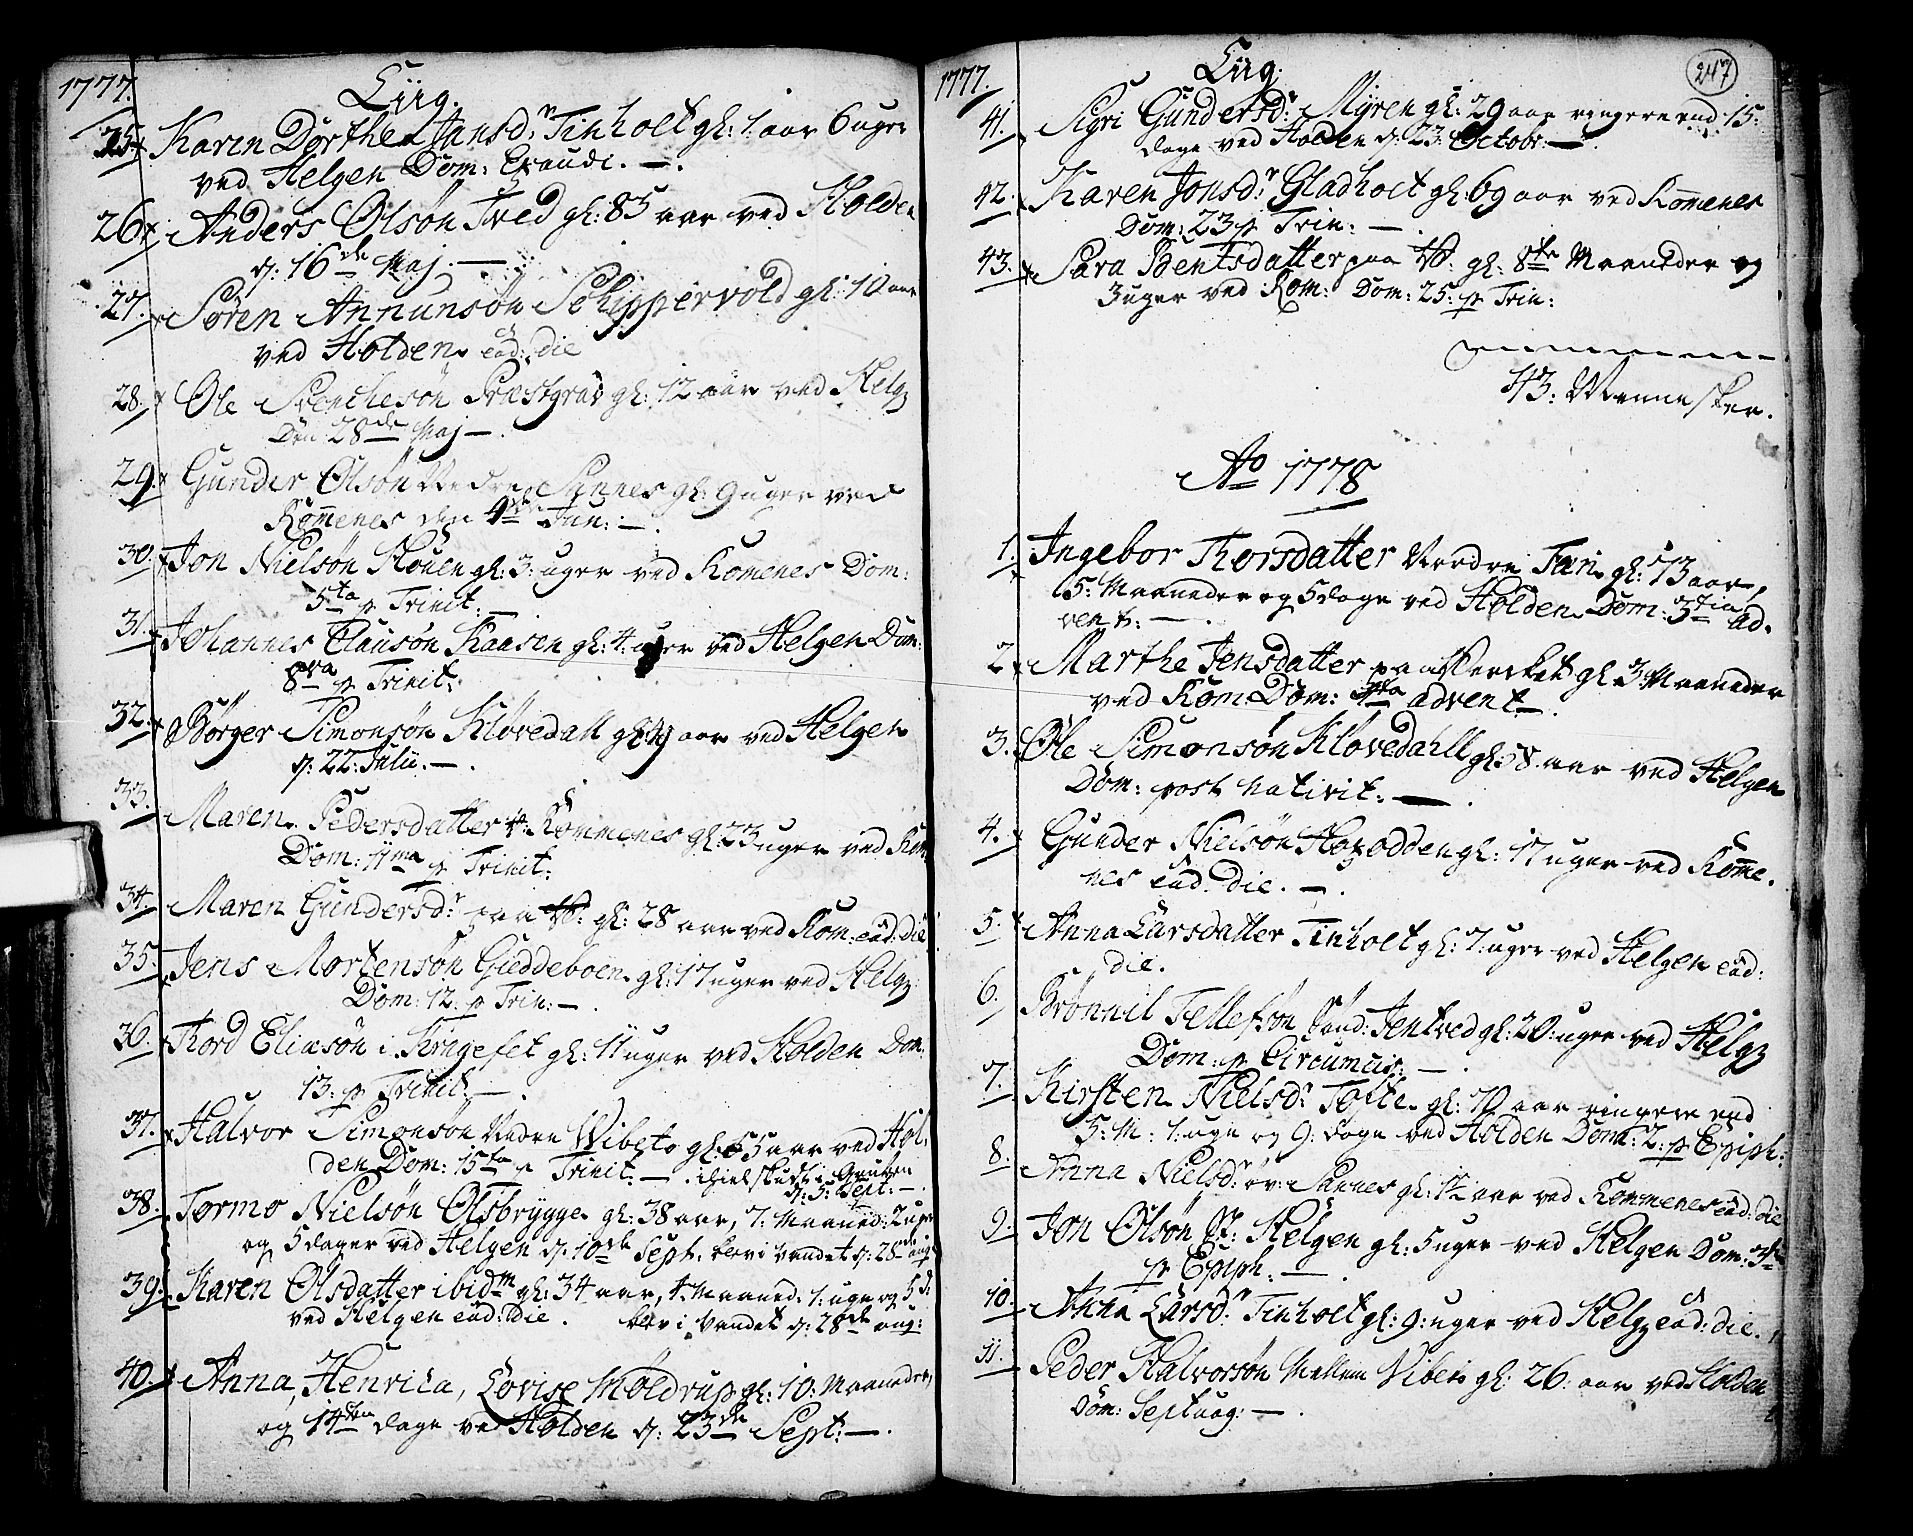 1777.
Liig.
25. Karen Dorthe Jansd.r Tinholt gl: 1. aar 6 uger
ved Helgen Dom: Exaudi. —.
26. Anders Olsøn Tved gl: 85 aar ved Holden
d: 16de Maj. —.
27. Søren Annunsøn Schippervold gl: 10 aar
ved Holden ead: die
28. Ole Svenchesøn Præstgrav gl: 12 aar ved Helg:
Den 28de Maj —.
29. Gunder Olsøn Nedre Sannes gl: 9 uger ved
Komenes den 4de Jun: —.
30. Jon Nielsøn Skouen gl: 3: uger ved Komenes Dom:
5ta p Trinit: —
31. Johannes Clausøn Kaasen gl: 4: uger ved Helgen Dom:
8va p Trinit:
32. Børger Simonsøn Kløvedall gl: aar ved Helgen
d: 22: Julii. —.
33. Maren Pedersdatter V: Kommenes gl: 23 uger ved Kom
Dom: 11ma p Trinit:
34. Maren Gundersd.r paa V: gl: 28 aar ved Kom: ead: die
35. Jens Mortensøn Gieddeboen gl: 17 uger ved Helg:
Dom: 12: p Trin: —.
36. Tord Eliasøn i Krigefet gl: 11 uger ved Holden Dom:
13: p Trinit: —.
37. Halvor Simonsøn Nedre Wibeto gl: 55 aar ved Hol-
den Dom: 15ta p Trinit: —. ihielskudt i Gruben
d: 5: Sept: —.
38. Tormo Nielsøn Olsbrygge gl: 38 aar, 7: Maaned: 2 uger
og 5 dager ved Helgen d: 10de Sept: blev i Vandet d: 28de aug:
39. Karen Olsdatter ibidm gl: 34 aar, 4: Maaned: 1: uge og 5 d:
ved Helgen ead: die. blev i Vandet d: 28de aug:
40. Anna, Henrica, Lovise Moldrup gl: 10: Maaneder,
og 14ten dage ved Holden d: 23de Sept: —.
1777.
Liig.
247
41. Sigri Gundersd.r Myren gl: 29 aar ringere end 15:
dage ved Holden d: 23: Octobr: —
42. Karen Jonsd.r Gladholt gl: 69 aar ved Komenes
Dom: 23 p Trin: —.
43. Sara Bentsdatter paa V: gl: 8te Maaneder og
3 uger ved Kom: Dom: 25: p Trin:
43: Mennesker.
Ao 1778
1. Ingebor Thorsdatter Nerdre Fæn gl: 73 aar,
5: Maaneder og 5 dage ved Holden Dom: 3tia ad-
vent: —.
2. Marthe Jensdatter paa Vercket gl: 3: Maaneder
ved Kom: Dom: advent —.
3. Ole Simonsøn Kløvedahll gl: 58. aar ved Helgen
Dom: post nativit: —.
4. Gunder Nielsøn Hogodden gl: 17 uger ved Kome-
nes ead: die. —.
5. Anna Larsdatter Tinholt gl: 7: uger ved Helgen ead:
die.
6. Brønnil Tellefsøn Sønd: Jentved gl: 20: uger ved Helg:
Dom: p Circumcis: —.
7. Kirsten Nielsd.r Tofte gl: 70 aar ringere end
5: M: 1: uge og 9: dage ved Holden Dom: 2: p Epiph:
8. Anna Nielsd.r øv: Sannes gl: aar ved Kommenes ead: die
9. Jon Olsøn St: Helgen gl: 5 uger ved Helgen Dom: 3tia
p Epiph: —.
10. Anna Larsd.r Tinholt gl: 9: uger ved Helg: ead: die.
11. Peder Halvorsøn Mellem Vibeto gl: 26: aar ved Holden
Dom: Septuag: —.